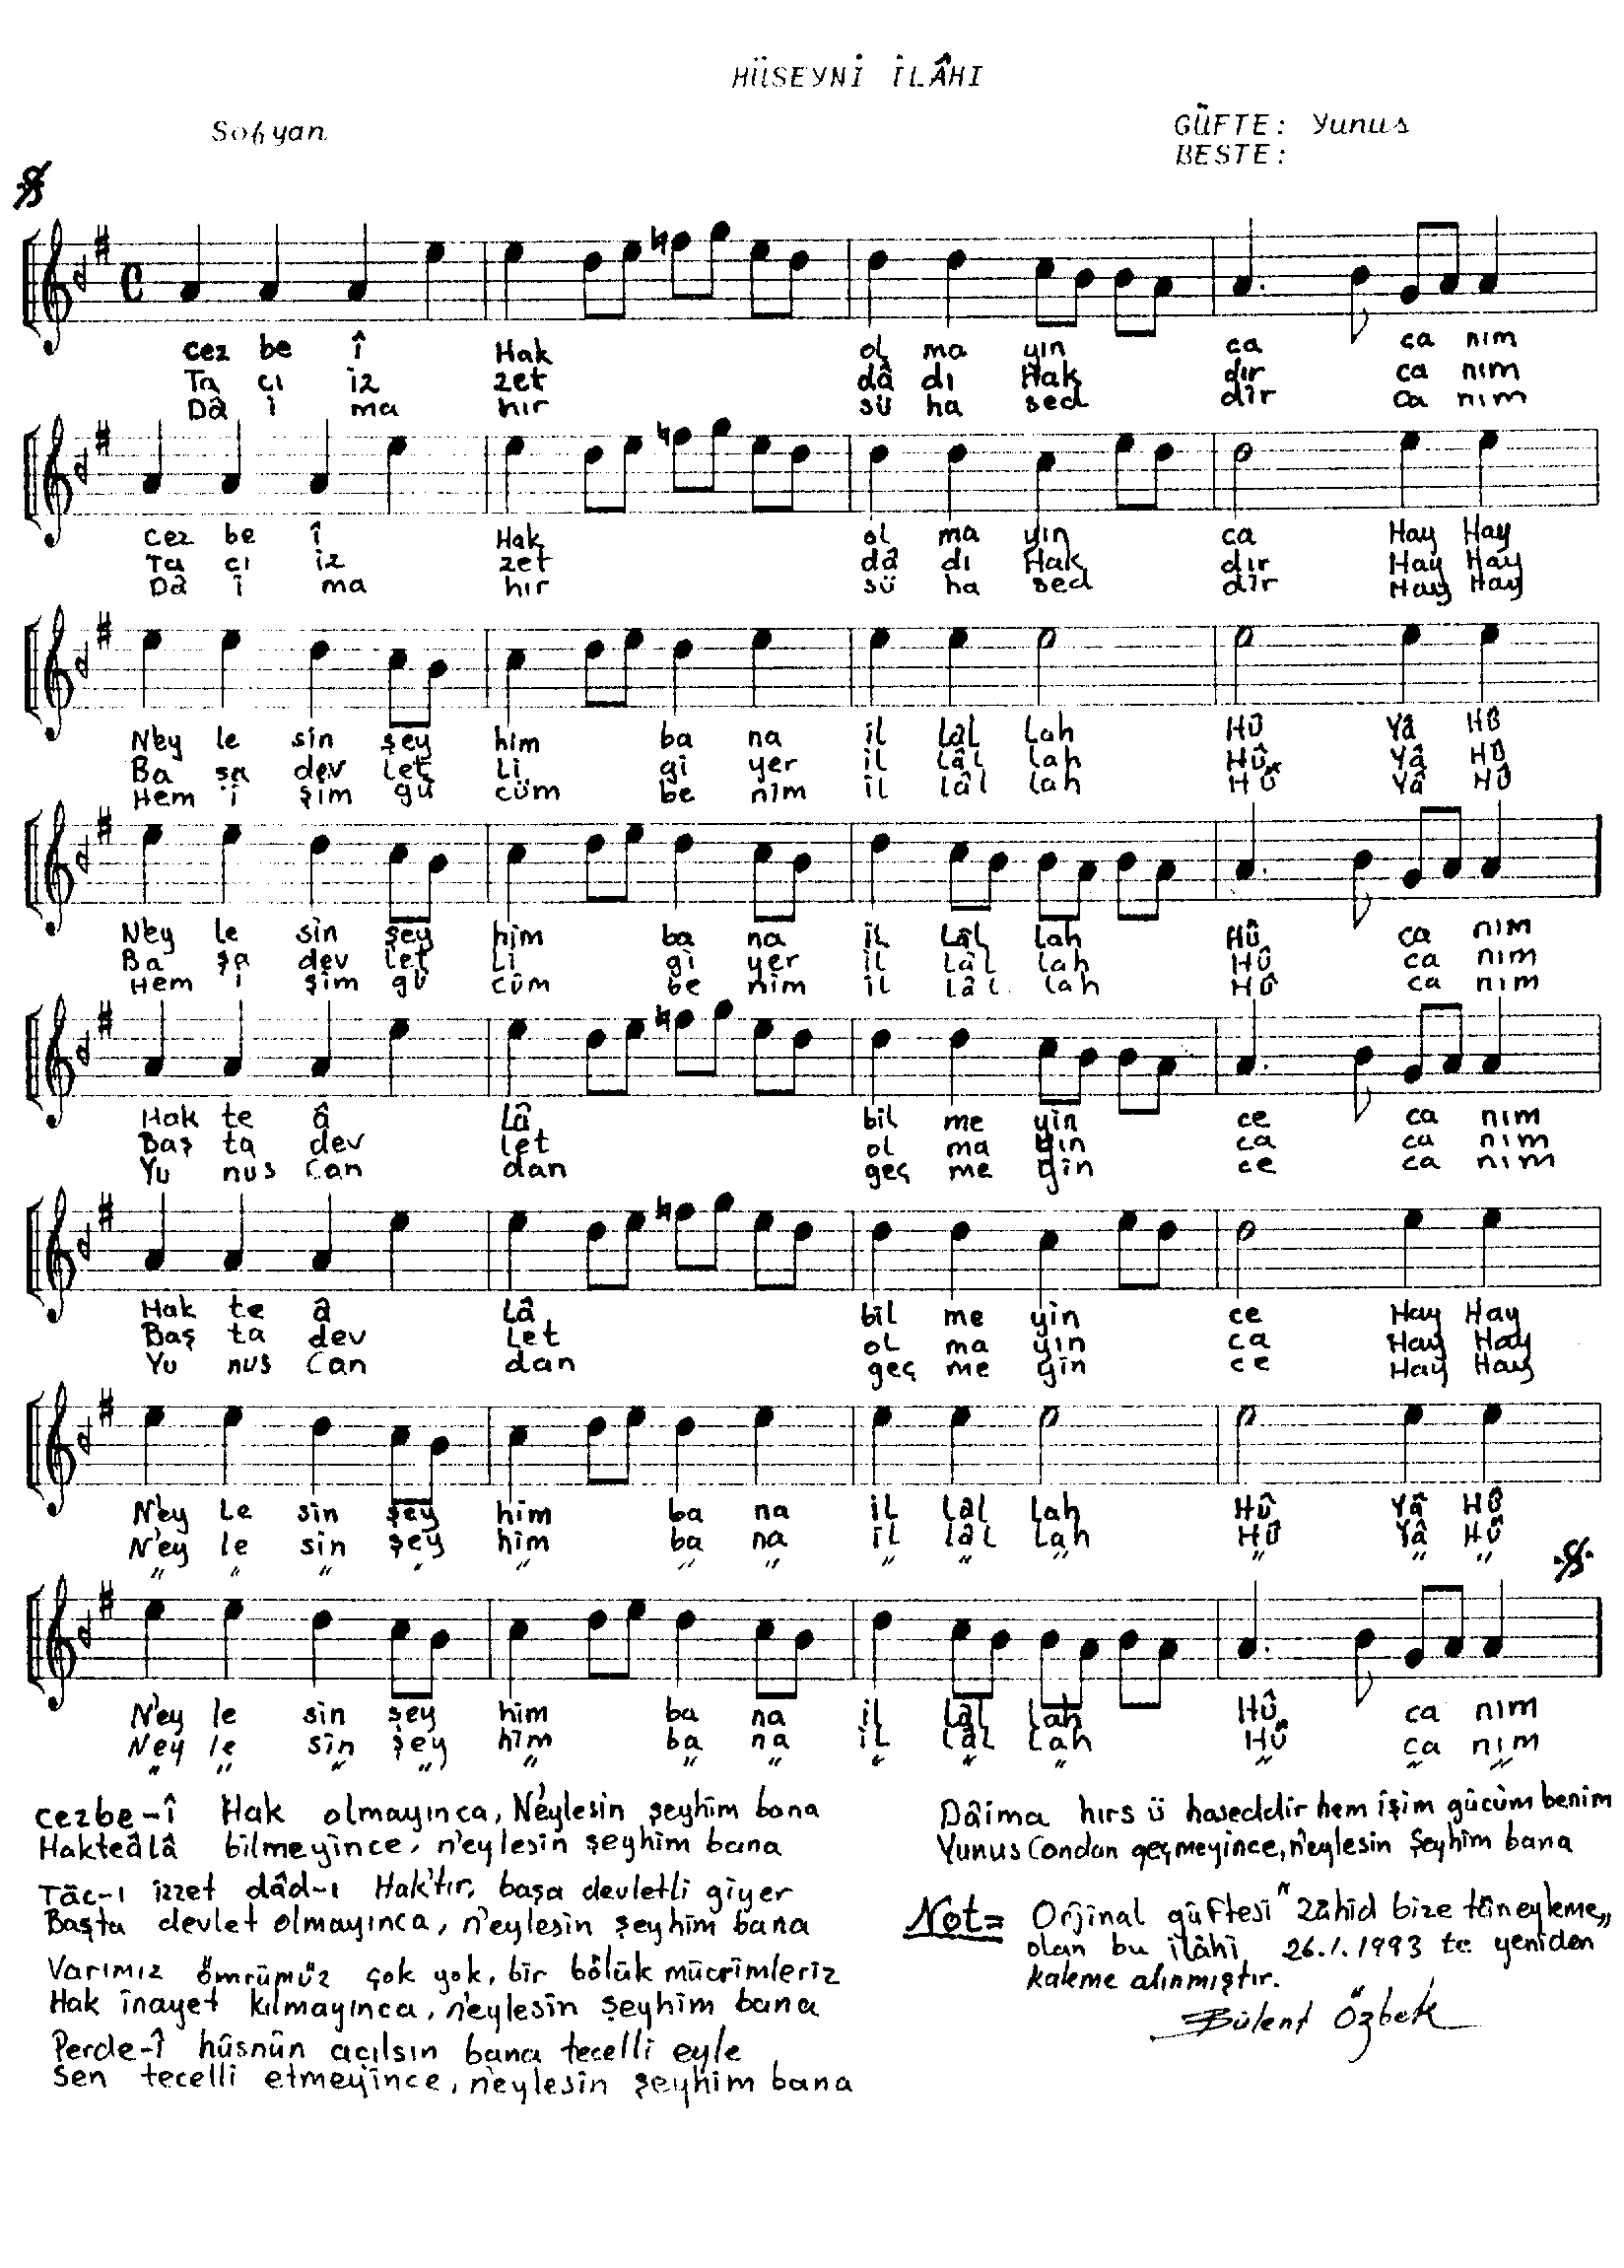 HÜSEYNİ İLÂHI
Sofyan
GÜFTE: Yunus
BESTE:
cez be î Hak ol ma yın ca ca nım
Ta cı iz zet dâ dı Hak dır ca nım
Dâ i ma hır sü ha sed dir ca nım
cez be î Hak ol ma yın ca Hay Hay
Ta cı iz zet dâ dı Hak dır Hay Hay
Dâ î ma hır sü ha sed dir Hay Hay
N'ey le sin şey him ba na il lâl lah Hû Yâ Hû
Ba şa dev let li gi yer il lâl lah Hû Yâ Hû
Hem i şim gü cüm be nim il lâl lah Hû Yâ Hû
N'ey le sin şey him ba na il lâl lah Hû ca nım
Ba şa dev let li gi yer il lâl lah Hû ca nım
Hem i şim gü cüm be nim il lâl lah Hû ca nım
Hak te â lâ bil me yin ce ca nım
Baş ta dev let ol ma yın ca ca nım
Yu nus Can dan geç me yin ce ca nım
Hak te â lâ bil me yin ce Hay Hay
Baş ta dev let ol ma yın ca Hay Hay
Yu nus Can dan geç me yin ce Hay Hay
N'ey le sin şey him ba na il lâl lah Hû Yâ Hû
N'ey le sin şey him ba na il lâl lah Hû Yâ Hû
" " " " " " " " " " " " "
N'ey le sin şey him ba na il lâl lah Hû ca nım
N'ey le sin şey him ba na il lâl lah Hû ca nım
" " " " " " " " " " " " "
cezbe-î Hak olmayınca, N'eylesin şeyhim bana
Hakteâlâ bilmeyince, n'eylesin şeyhim bana
Tâc-ı izzet dâd-ı Hak'tır, başa devletli giyer
Başta devlet olmayınca, n'eylesin şeyhim bana
Varımız ömrümüz çok yok, bir bölük mücrimleriz
Hak inayet kılmayınca, n'eylesin şeyhim bana
Perde-î hüsnün açılsın bana tecelli eyle
Sen tecelli etmeyince, n'eylesin şeyhim bana
Dâima hırs ü haseddir hem işim gücüm benim
Yunus Candan geçmeyince, n'eylesin Şeyhim bana
Not= Orjinal güftesi "Zâhid bize tân eyleme"
olan bu ilâhi 26.1.1993 te yeniden
kaleme alınmıştır.
Bülent Özbek